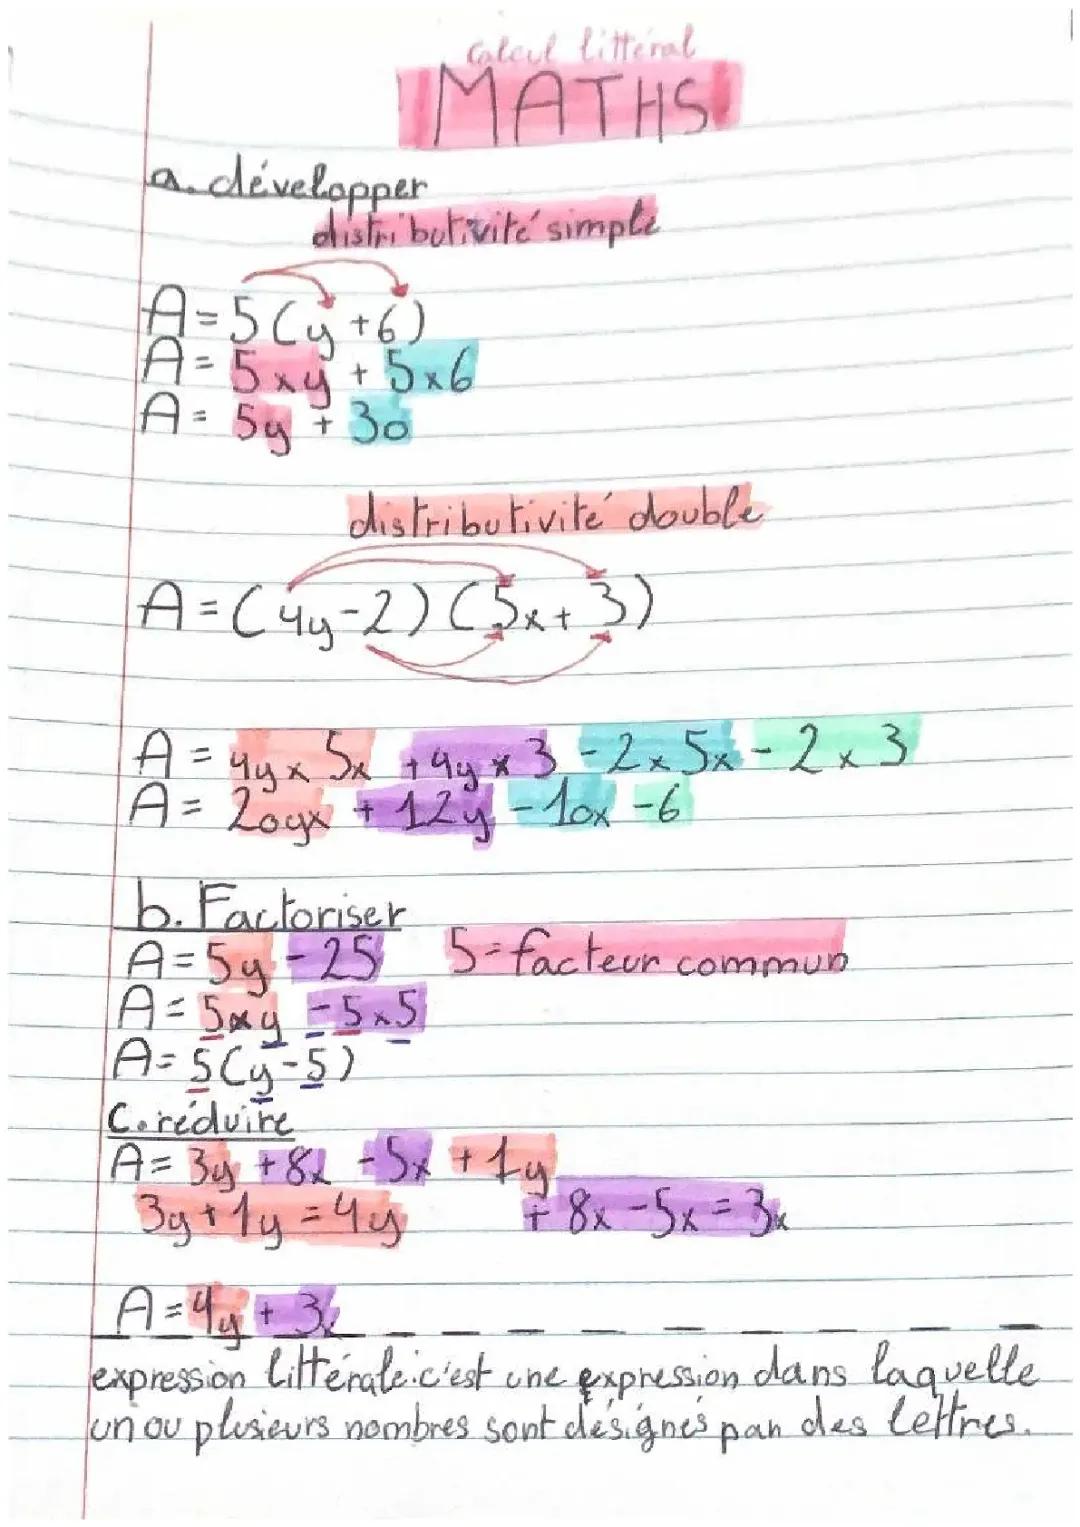 Calcul littéral
MATHS
a. développer
distributivité simple
A = 5(y + 6)
A = 5 x y + 5 x 6
A = 5y + 30
distributivité double
A = (4y - 2) (5x + 3)
A = 4y x 5x + 4y x 3 - 2 x 5x - 2 x 3
A = 20yx + 12y - 10x - 6
b. Factoriser
A = 5y - 25 5 = facteur commun
A = 5 x y - 5 x 5
A = 5(y - 5)
C. réduire
A = 3y + 8x - 5x + 1y
3y + 1y = 4y + 8x - 5x = 3x
A = 4y + 3x
expression littérale: c'est une expression dans laquelle
un ou plusieurs nombres sont désignés par des lettres.